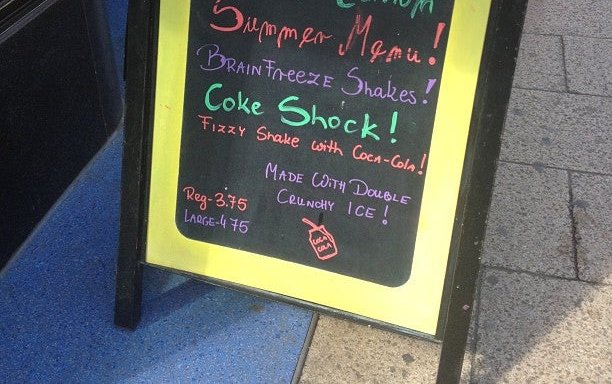 Summer Menu!
BRAINFREEZE Shakes!
Coke Shock!
FIZZY Shake with COCA-COLA!
MADE WITH DOUBLE
CRUNCHY ICE!
Reg-3.75
LARGE-4.75
COCA
COLA